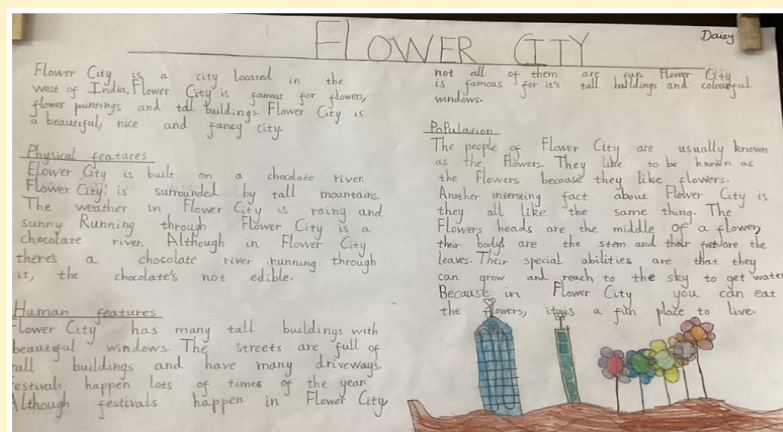 FLOWER CITY
Daisy
Flower City is a city located in the
west of India. Flower City is famous for flowers,
flower paintings and tall buildings. Flower City is
a beautiful, nice and fancy city.
Physical features
Flower City is built on a chocolate river.
Flower City is surrounded by tall mountains.
The weather in Flower City is rainy and
sunny Running through Flower City is a
chocolate river. Although in Flower City
there's a chocolate river running through
it, the chocolate's not edible.
Human features
Flower City has many tall buildings with
beautiful windows. The streets are full of
tall buildings and have many driveways.
estivals happen lots of times of the year
Although festivals happen in Flower City
not all of them are fun Flower City
is famous for it's tall buildings and colourful
windows.
Population
The people of Flower City are usually known
as the Flowers. They like to be known as
the Flowers because they like flowers.
Another intersting fact about Flower City is
they all like the same thing. The
Flowers heads are the middle of a flower,
their bodys are the stem and their are the
leaves. Their special abilities are that they
can grow and reach to the sky to get water
Because in Flower City you can eat
the flowers, a fun place to live.